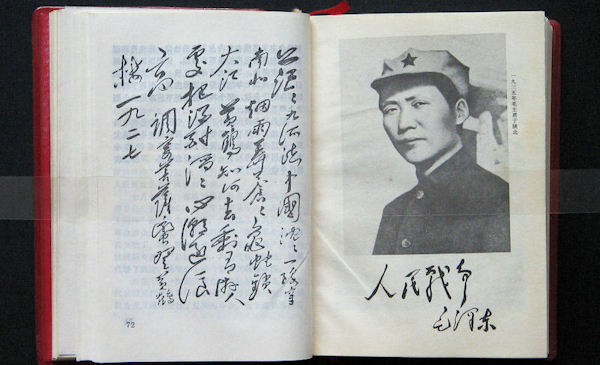 茫々九派流中國沉々一線穿
南北烟雨莽蒼々龜蛇鎖
大江黃鶴知何去剩有游人
處把酒酹滔々心潮逐浪
高調寄菩薩蠻登黃鶴
樓一九二七
72
毛主席于陕北
人民战争
毛泽东